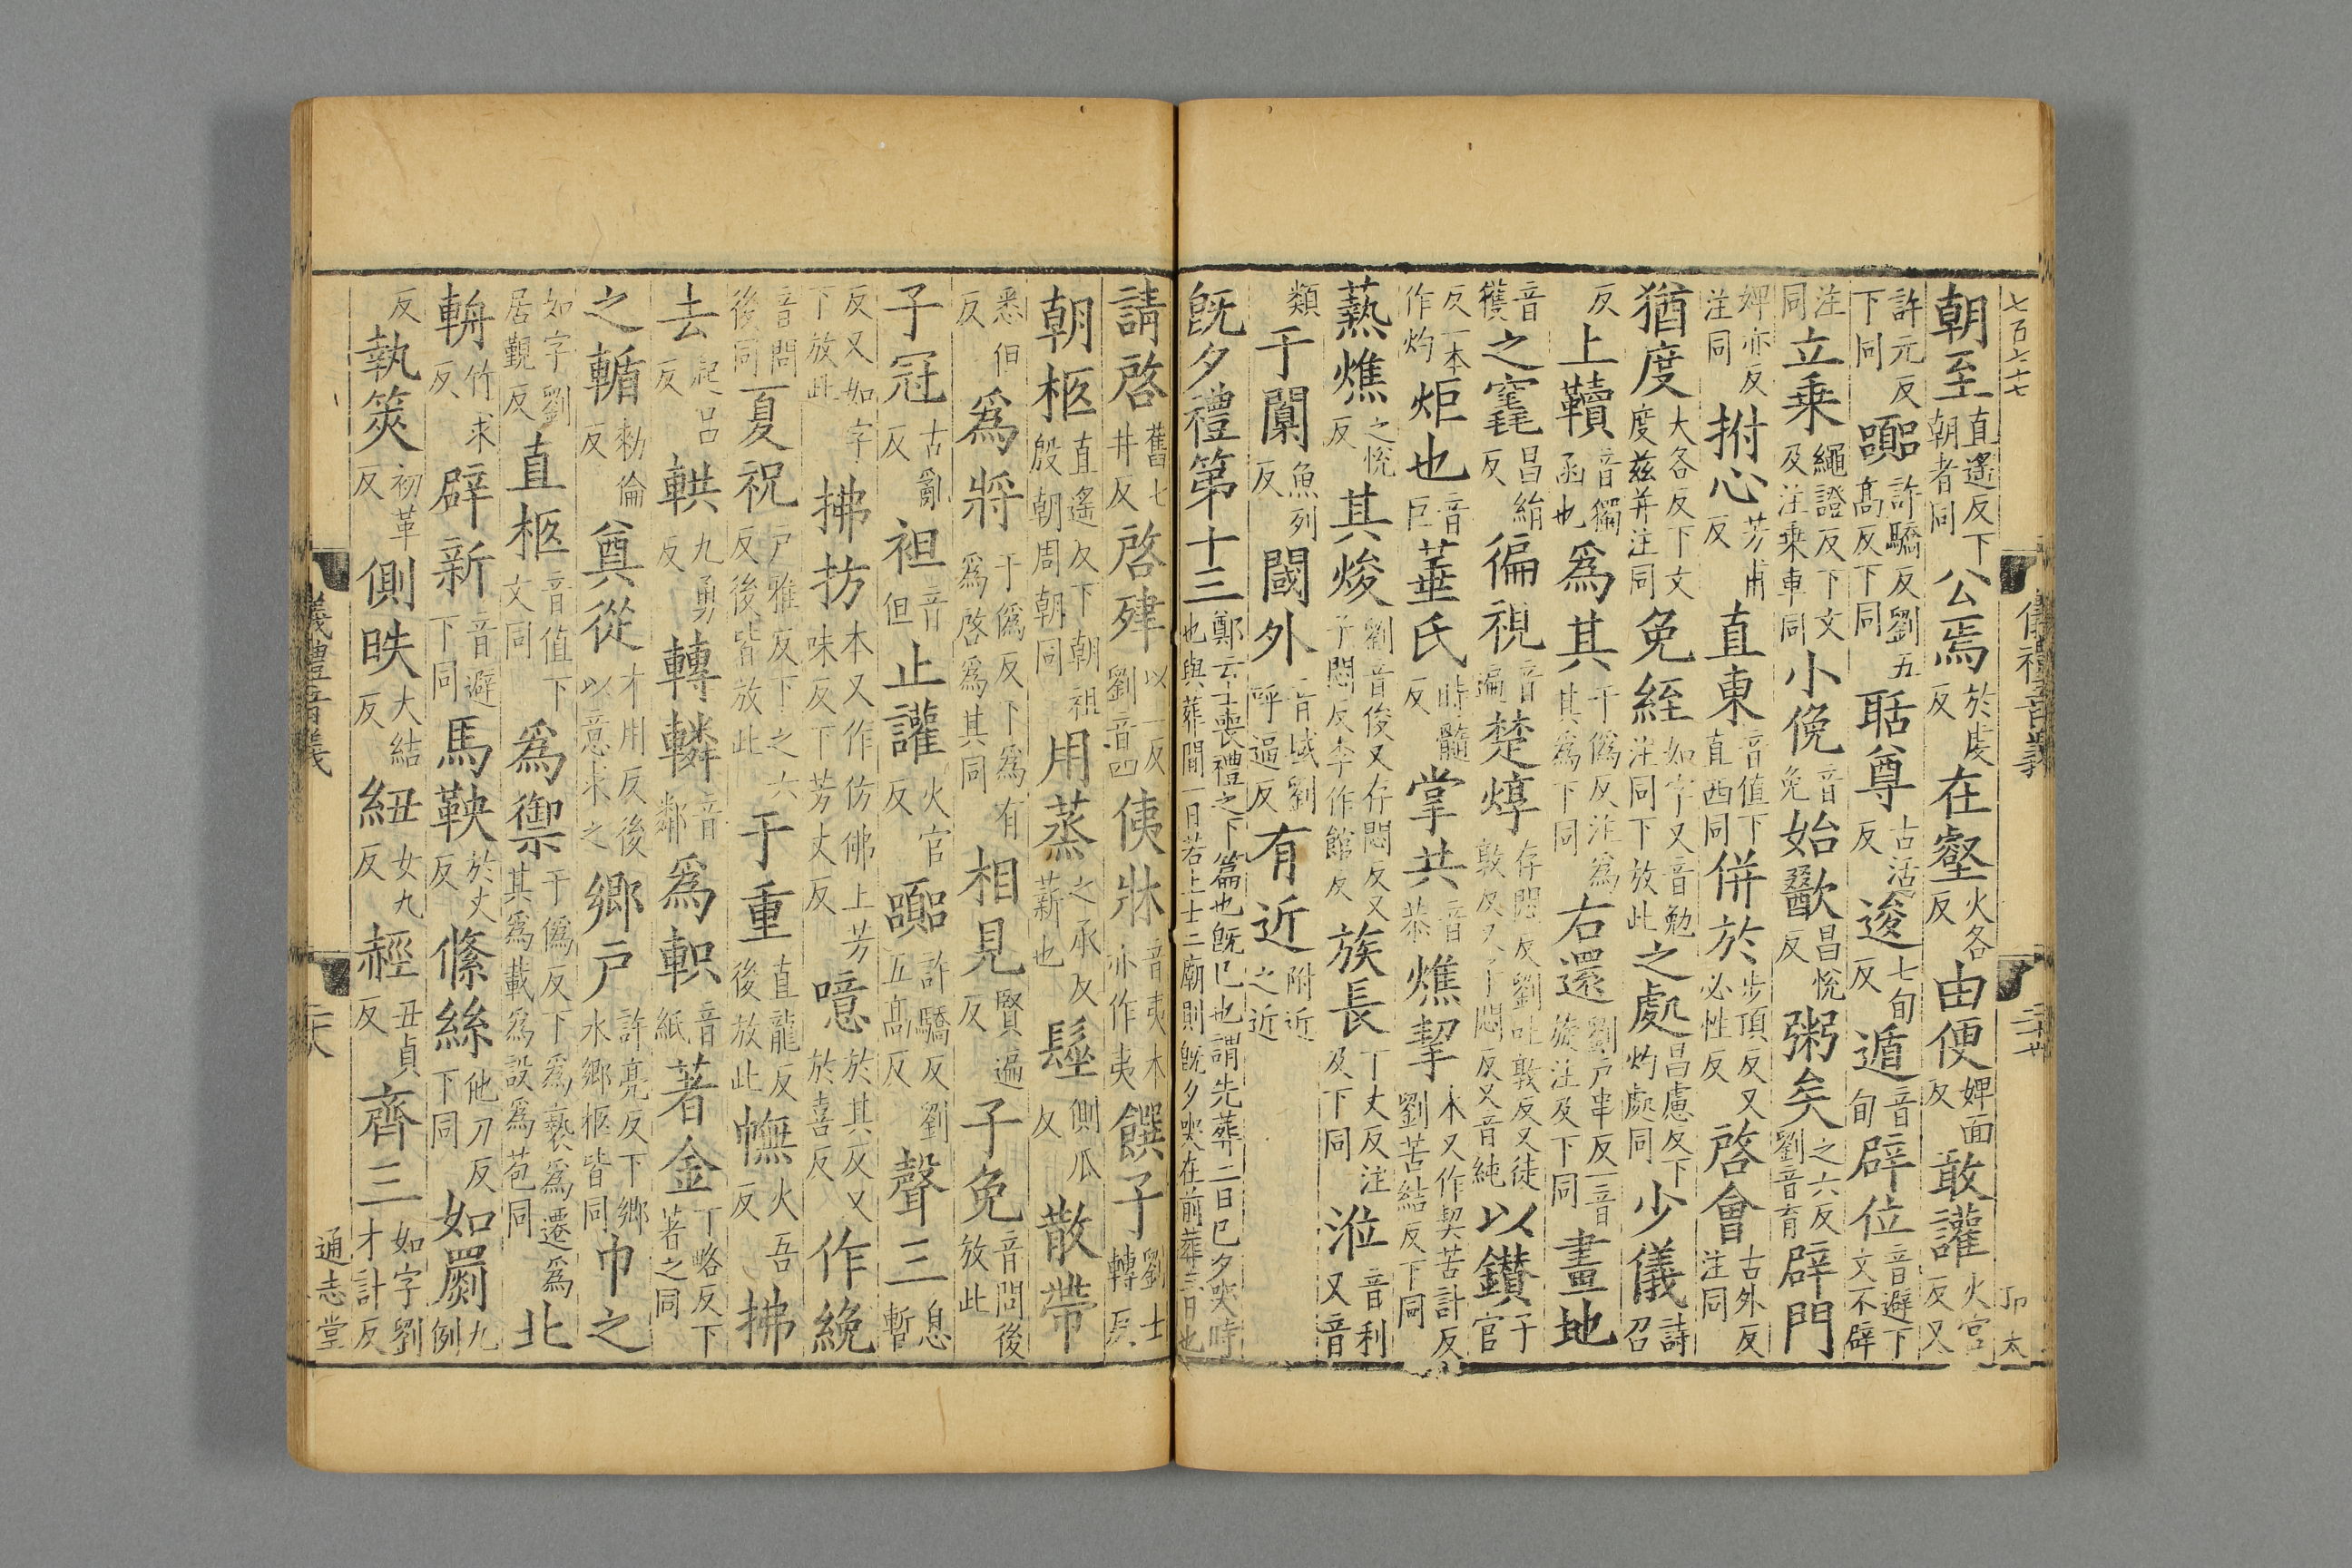 七百七十七
儀禮音義
朝至直遙反下朝者同公焉於虔反在壑火各反由便婢面反敢讙火官反又
許元反下同嚻許驕反劉五高反下同聒尊古活反逡七旬反遁音旬辟位音避下文不辟
注同立乘繩證反下文及注乘車同小俛音免始歠昌悅反粥矣之六反劉音育辟門
婢亦反注同拊心芳甫反直東音值下直西同併於步頂反又必性反啓會古外反注同
猶度大各反下文度茲并注同免絰如字又音勉注同下放此之處昌慮反下灼處同少儀詩召
反上韇音獨函也爲其于僞反注爲其爲下同右還劉戶串反一音旋注及下同畫地
音獲之竁昌絹反徧視音遍楚焞存悶反劉吐敦反又徒敦反又丁悶反又音純以鑚子官
反一本作灼炬也音巨菙氏時髓反掌共音恭燋挈本又作契苦計反劉苦結反下同
爇燋之悅反其焌劉音俊又存悶反又子悶反李作館反族長丁丈反注及下同涖音利又音
類于闑魚列反閾外音域劉呼逼反有近附近之近
旣夕禮第十三鄭云士喪禮之下篇也旣已也謂先葬二日已夕哭時也與葬間一日若上士二廟則旣夕哭在前葬三日也
請啓舊七井反啓殔以二反劉音四侇牀音夷本亦作夷饌子劉士轉反
朝柩直遙反下朝祖殷朝周朝同用蒸之承反薪也髽側瓜反散帶
悉但反爲將于僞反下爲有爲啓爲其同相見賢遍反子免音問後放此
子冠古亂反袒音但止讙火官反嚻許驕反劉五高反聲三息暫
反又如字下放此拂扐本又作仿佛上芳味反下芳丈反噫於其反又於喜反作絻
音問後同夏祝戶雅反下之六反後皆放此于重直龍反後放此幠火吾反拂
去起呂反輁九勇反轉轔音鄰爲軹音紙著金丁略反下著之同
之輴勑倫反奠從才用反後以意求之鄉戶許亮反下鄉水鄉柩皆同巾之
如字劉居覲反直柩音值下文同爲禦于僞反下爲褻爲遷爲其爲載爲設爲苞同北
輈竹求反辟新音避下同馬鞅於丈反絛絲他刀反下同如罽九例
反執筴初革反側昳大結反紐女九反經丑貞反齊三如字劉才計反
儀禮音義
通志堂